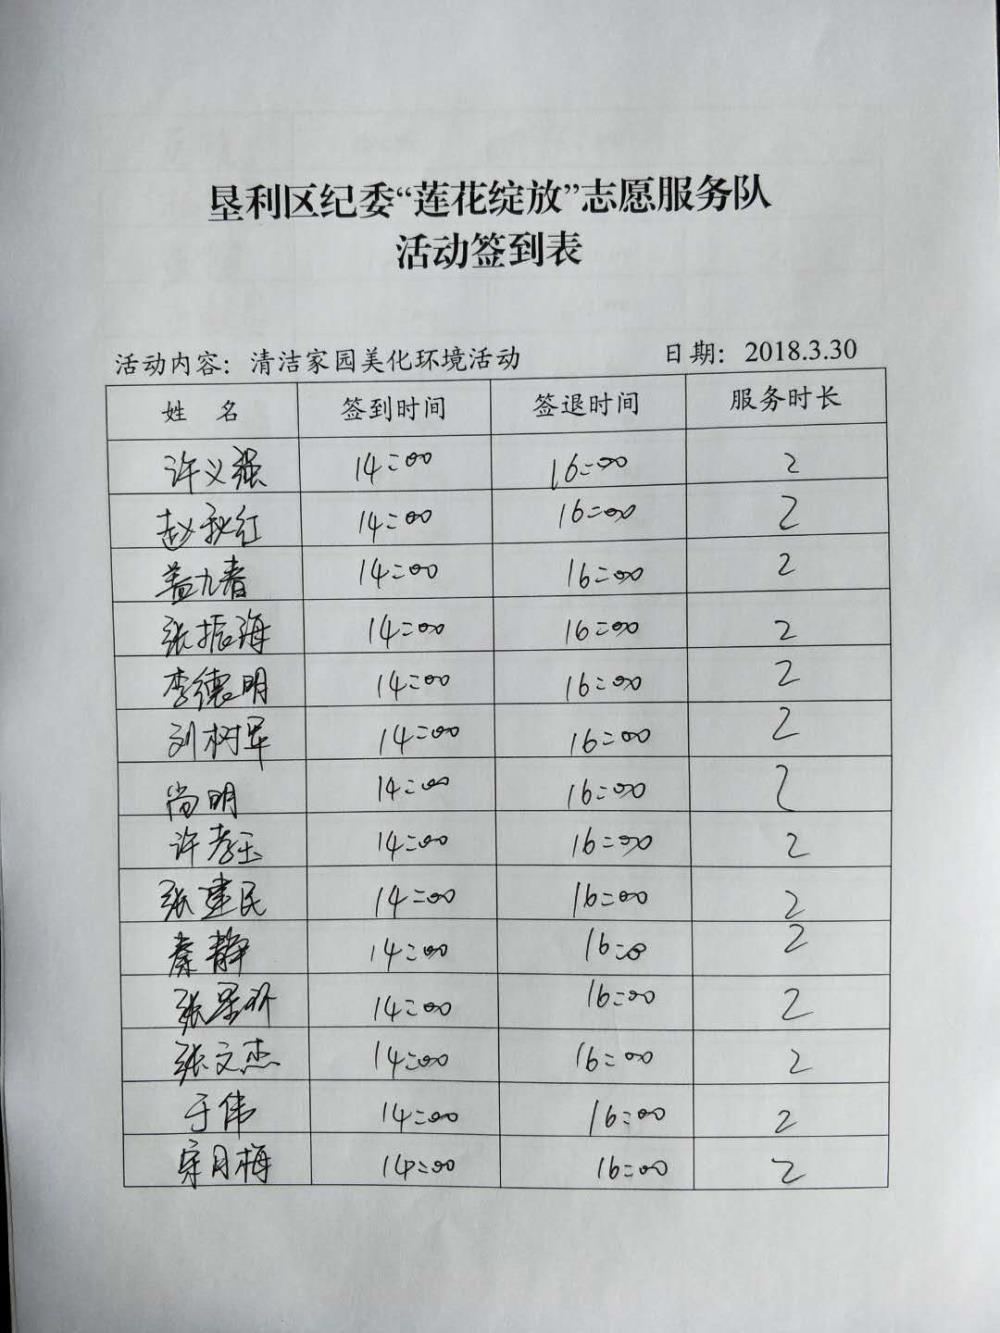 垦利区纪委“莲花绽放”志愿服务队
活动签到表
活动内容：清洁家园美化环境活动 日期：2018.3.30
姓 名 签到时间 签退时间 服务时长
许义强 14:00 16:00 2
赵秋红 14:00 16:00 2
盖九春 14:00 16:00 2
张振海 14:00 16:00 2
李德明 14:00 16:00 2
刘树军 14:00 16:00 2
尚明 14:00 16:00 2
许孝玉 14:00 16:00 2
张建民 14:00 16:00 2
秦静 14:00 16:0 2
张 14:00 16:00 2
张文杰 14:00 16:00 2
于伟 14:00 16:00 2
宋月梅 14:00 16:00 2